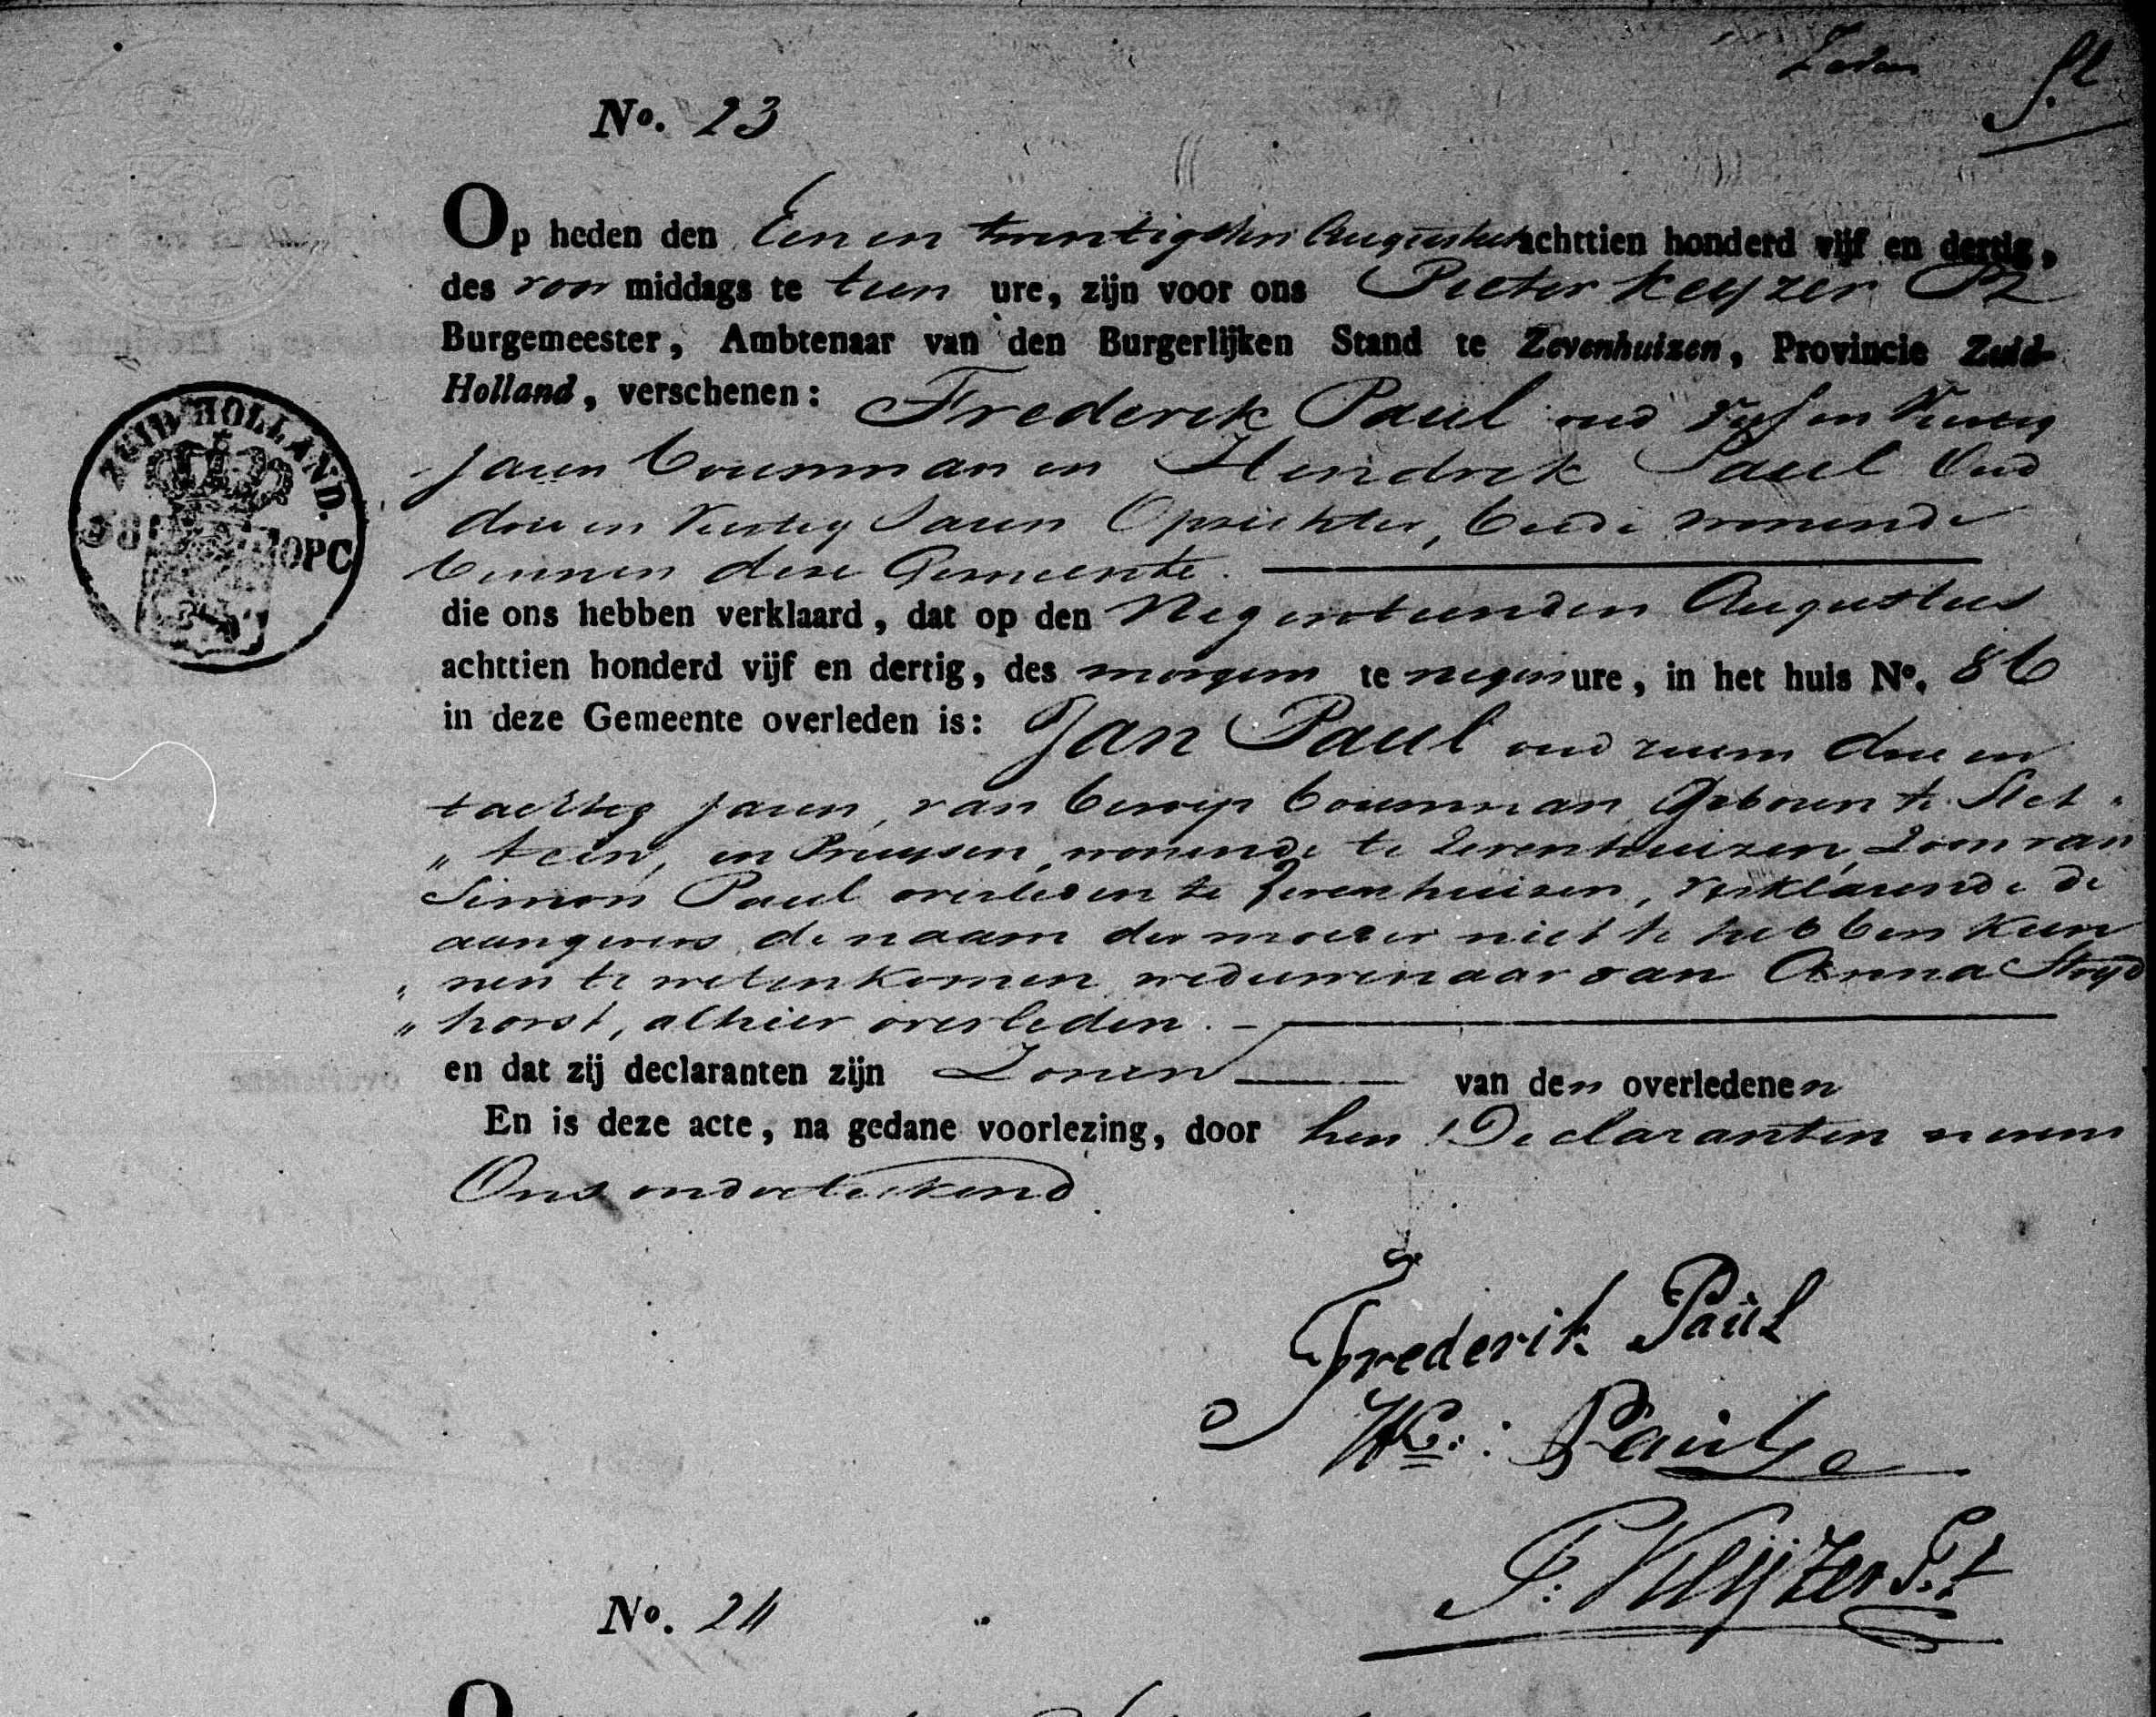 Zeven
fl
No. 23
Op heden den Een en twintigsten Augustus achttien honderd vijf en dertig,
des voor middags te tien ure, zijn voor ons Pieter Keyzer Pz
Burgemeester, Ambtenaar van den Burgerlijken Stand te Zevenhuizen, Provincie Zuid-
Holland, verschenen: Frederik Paul oud Vijf en Veertig
Jaren Bouwman en Hendrik Paul Oud
drie en Veertig Jaren Opzichter, beide wonende
binnen deze Gemeente.
ZUID HOLLAND.
38 OPC
die ons hebben verklaard, dat op den Negentienden Augustus
achttien honderd vijf en dertig, des morgens te negen ure, in het huis No. 86
in deze Gemeente overleden is: Jan Paul oud ruim drie en
tachtig Jaren, van beroep bouwman Geboren te Stet„
„tein, in Pruysen, wonende te Zevenhuizen, Zoon van
Simon Paul overleden te Zevenhuizen, verklarende de
aangevers de naam der moeder niet te hebben kun
„nen te weten komen, weduwenaar van Anna Stryd
„horst, alhier overleden. —
en dat zij declaranten zijn Zonen van den overledenen
En is deze acte, na gedane voorlezing, door hen Declaranten nevens
Ons onderteekend
Frederik Paul
Hk: Paul
P: Keijzer Pz
No. 24